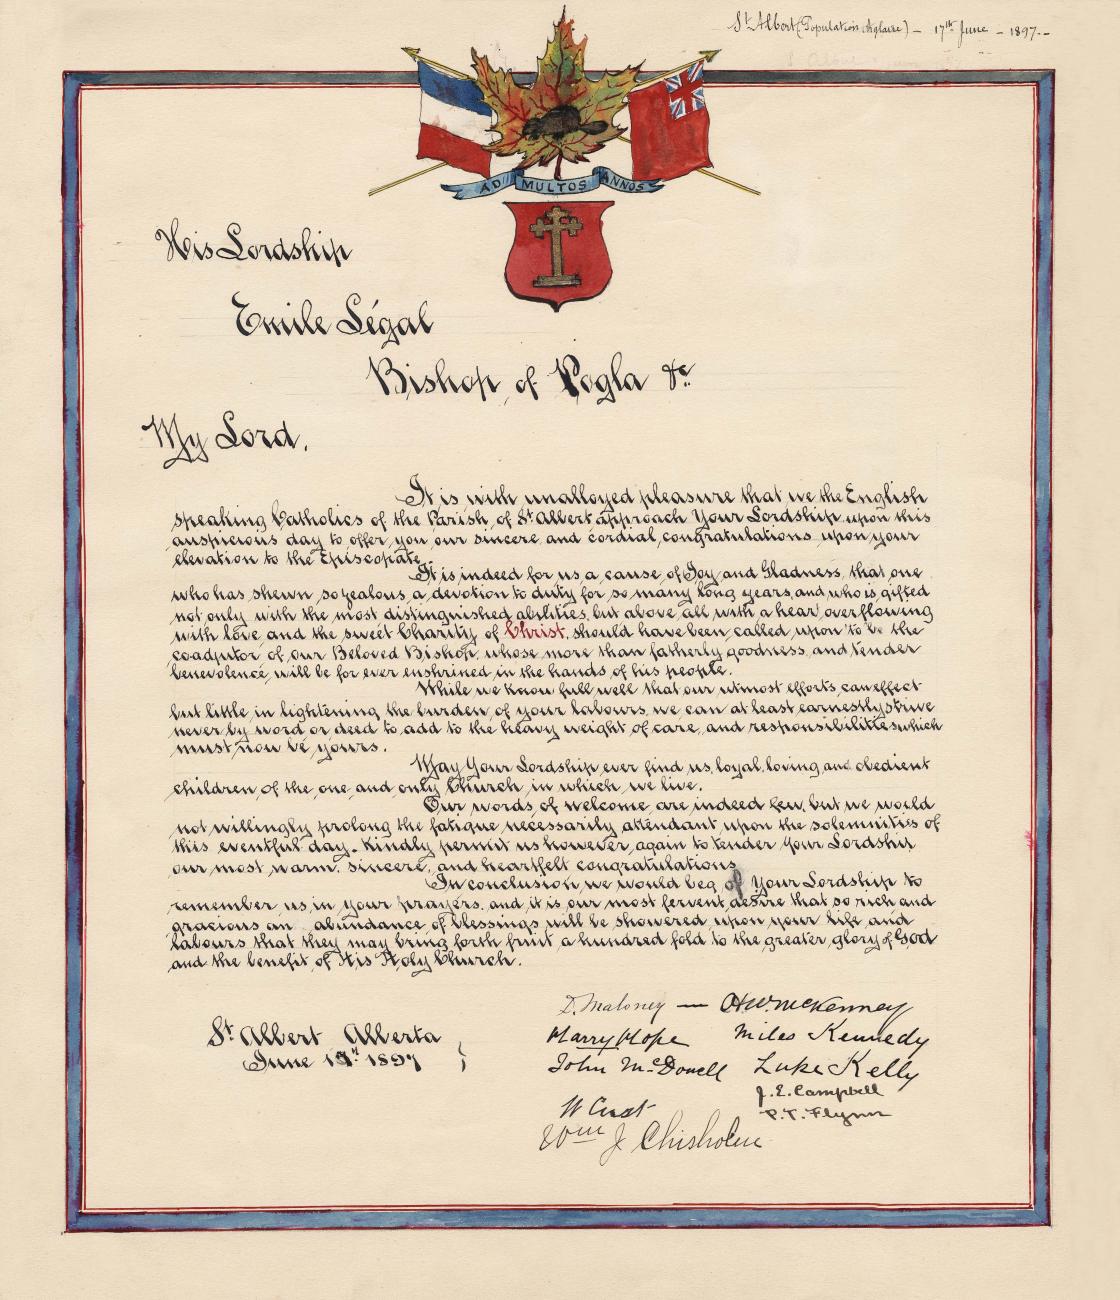 St Albert (Population Anglaise) - 17th June - 1897 -
AD MULTOS ANNOS
His Lordship
Emile Légal
Bishop of Pogla &c.
My Lord.
It is with unalloyed pleasure that we the English
speaking Catholics of the Parish of St Albert approach Your Lordship upon this
auspicious day to offer you our sincere and cordial congratulations upon your
elevation to the Episcopate.
It is indeed for us a cause of Joy and Gladness, that one
who has shewn so zealous a devotion to duty for so many long years, and who is gifted
not only with the most distinguished abilities, but above all with a heart overflowing
with love and the sweet Charity of Christ, should have been called upon to be the
coadjutor of our Beloved Bishop, whose more than fatherly goodness and tender
benevolence will be for ever enshrined in the hands of his people.
While we know full well that our utmost efforts can effect
but little in lightening the burden of your labours, we can at least earnestly strive
never by word or deed to add to the heavy weight of care and responsibilities which
must now be yours.
May Your Lordship ever find us loyal, loving and obedient
children of the one and only Church in which we live.
Our words of welcome are indeed few, but we would
not willingly prolong the fatigue necessarily attendant upon the solemnities of
this eventful day - Kindly permit us however, again to tender Your Lordship
our most warm, sincere, and heartfelt congratulations.
In conclusion we would beg of Your Lordship to
remember us in your prayers, and it is our most fervent desire that so rich and
gracious an abundance of blessings will be showered upon your life and
labours that they may bring forth fruit a hundred fold to the greater glory of God
and the benefit of His Holy Church.
D. Maloney — O.H.W. McKenney
St Albert Alberta
Harry Hope Miles Kennedy
June 17th 1897
John McDonell Luke Kelly
J. E. Campbell
W Cust P. T. Flynn
Wm J Chisholm